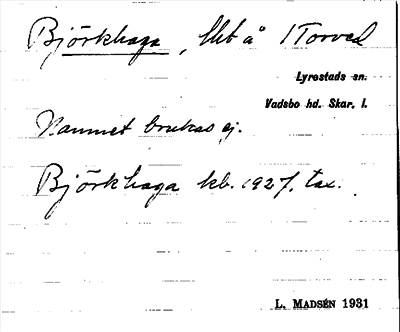 Björkhaga, lht å 1 Torved
Lyrestads sn.
Vadsbo hd. Skar. l.
Namnet brukas ej.
Björkhaga kb. 1927, tax.
L. MADSÉN 1931